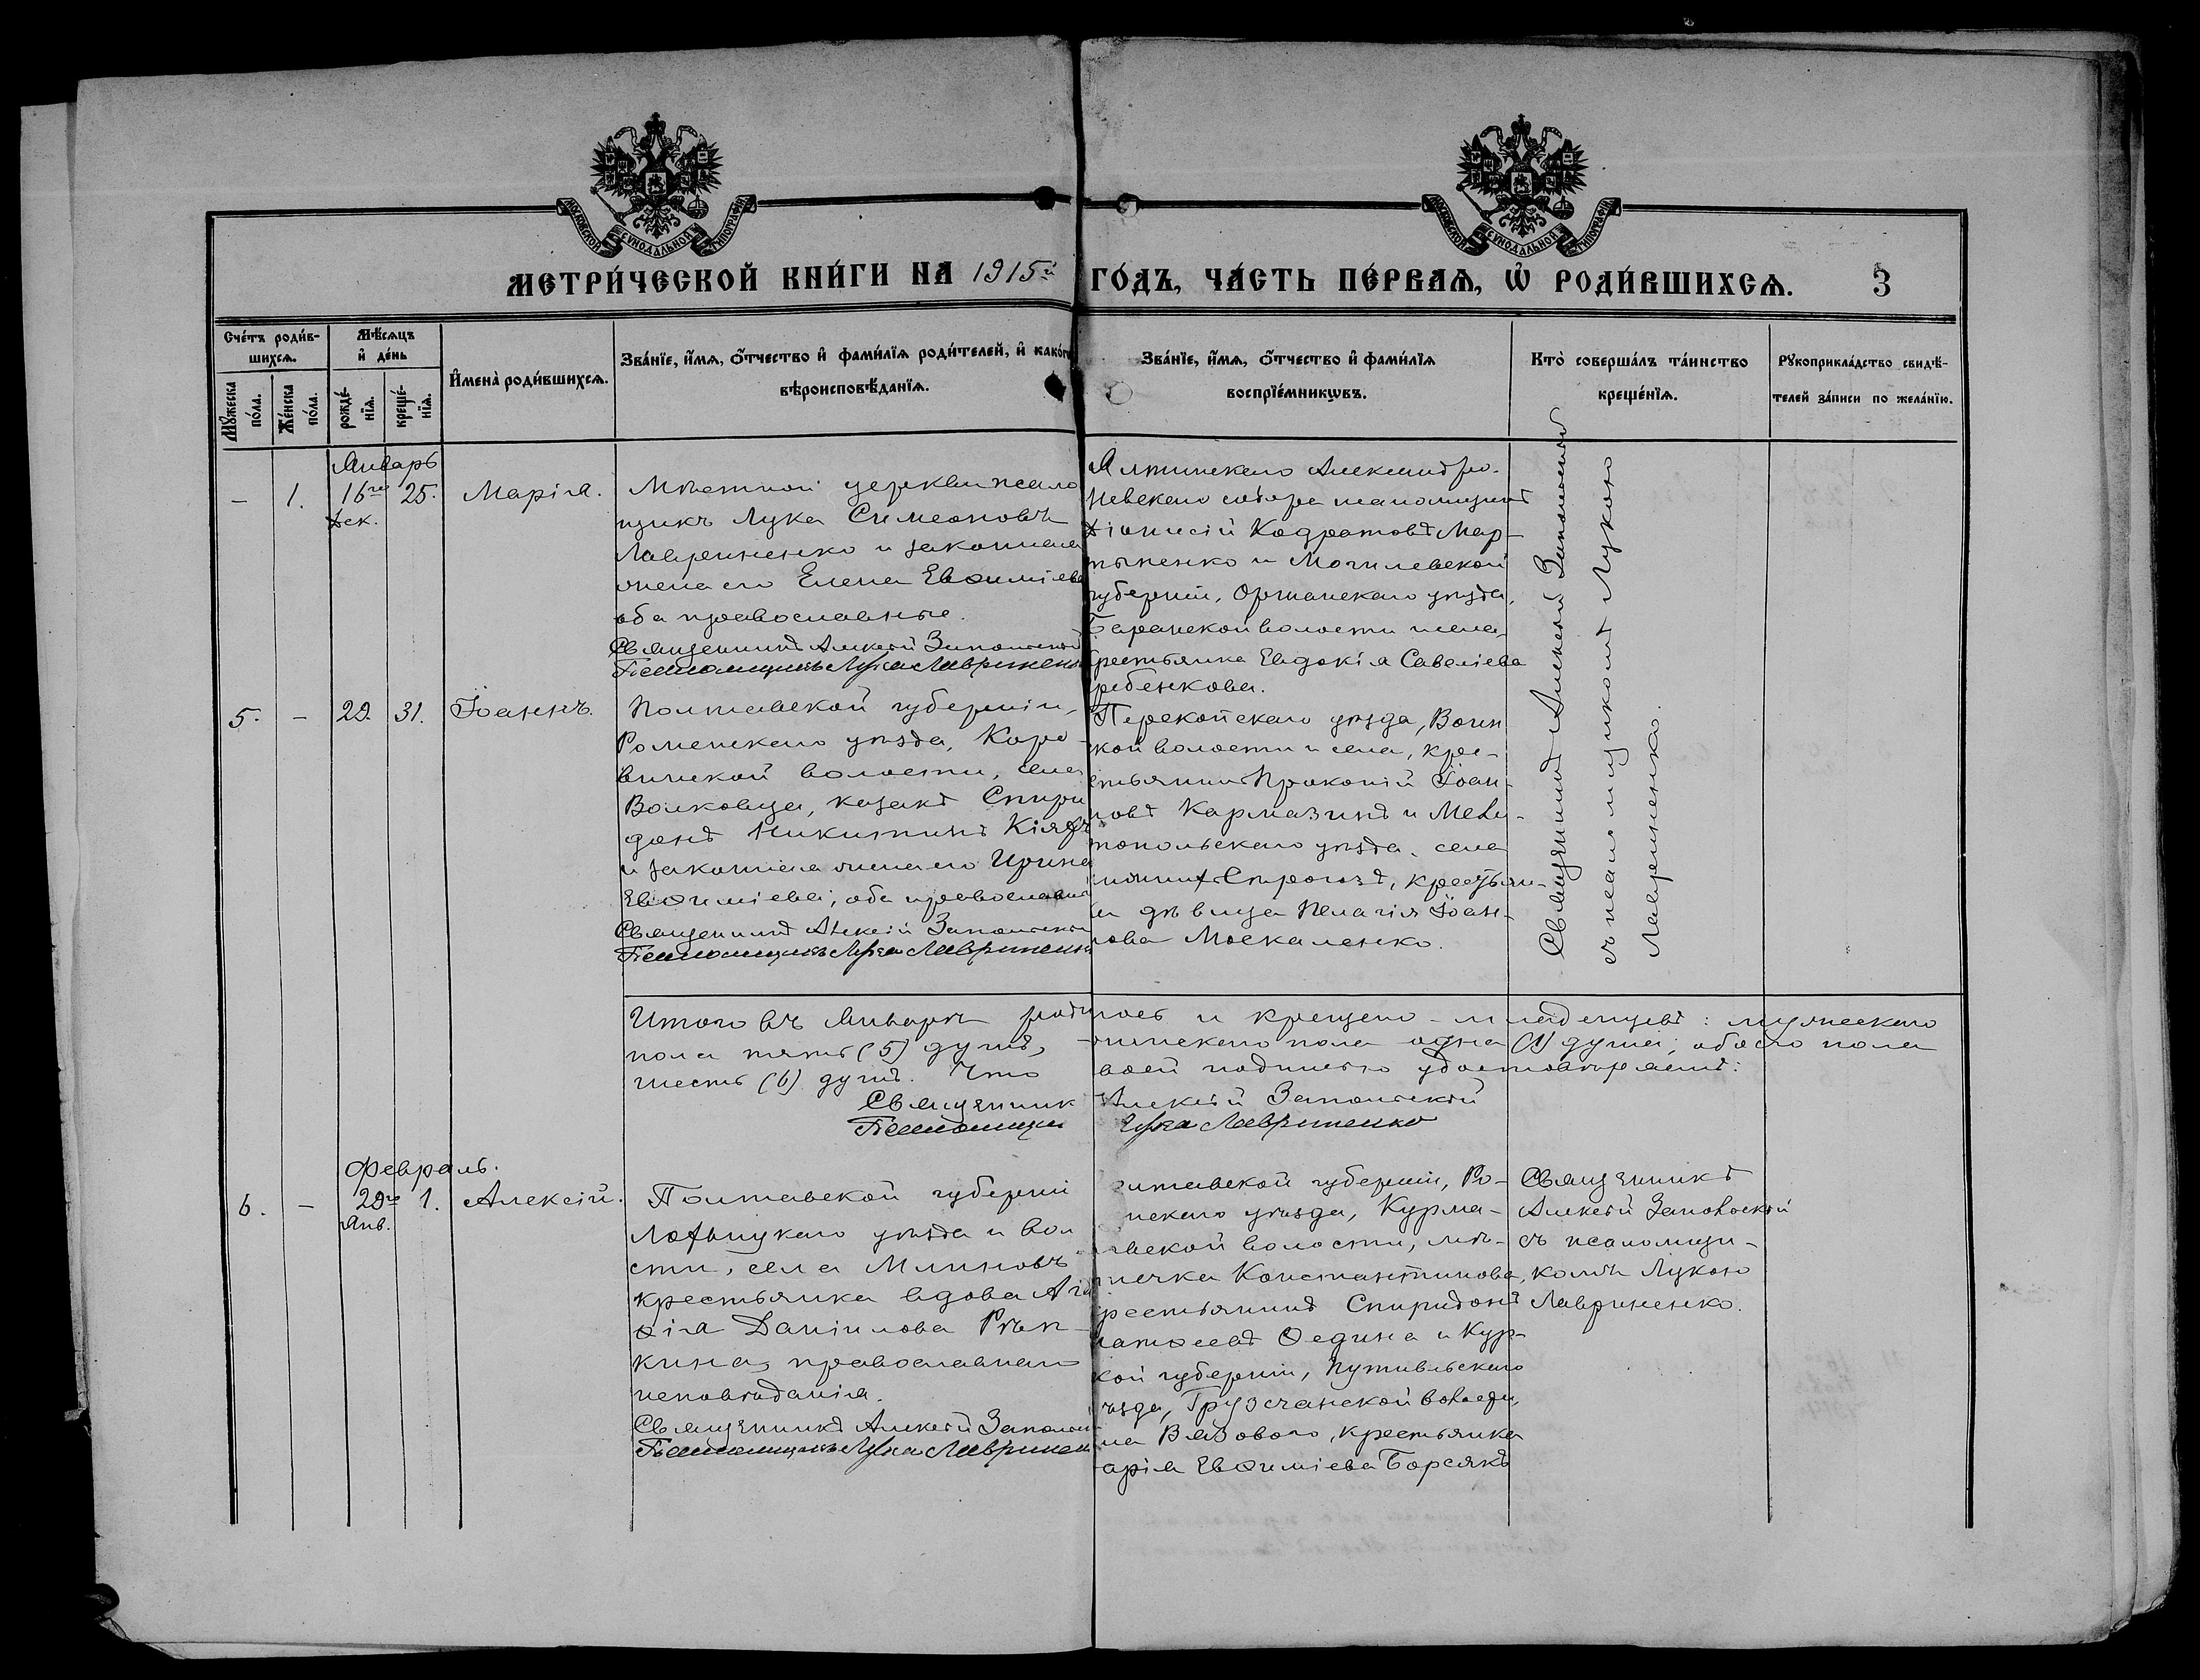 МОСКОВСКОЙ СѴНОДАЛЬНОЙ ТИПОГРАФІИ
МОСКОВСКОЙ СѴНОДАЛЬНОЙ ТИПОГРАФІИ
МЕТРИ́ЧЕСКОЙ КНИ́ГИ НА 1915й ГО́ДЪ, ЧА́СТЬ ПЕ́РВАѦ, Ѡ҆ РОДИ́ВШИХСѦ. 3
Сче́тъ роди́в-
шихсѧ.
Мꙋ́жеска
по́ла.
Же́нска
по́ла.
Мѣ́сѧцъ
и҆ де́нь
рожде́-
нїѧ.
креще́-
нїѧ.
И҆мена̀ роди́вшихсѧ.
Зва́нїе, и҆́мѧ, ѻ҆́тчество и҆ фами́лїѧ роди́телей, и҆ како́гѡ
вѣроисповѣ́данїѧ.
Зва́нїе, и҆́мѧ, ѻ҆́тчество и҆ фами́лїѧ
воспрїе́мникѡвъ.
Кто̀ соверша́лъ та́инство
креще́нїѧ.
Рꙋкоприкла́дство свидѣ́-
телей за́писи по жела́нїю.
Январь
– 1. 16го 25. Марія.
Дек.
Мѣстной церкви псало
щикъ Лука Симеоновъ
Лавриненко и законная
жена его Елена Евѳиміева
оба православные.
Священникъ Алексій
Псаломщикъ Лука Лавриненко
Ялтинскаго Александро-
Невскаго собора псаломщикъ
Діонисій Кодратовъ Мар-
тыненко и Могилевской
губерніи, Оршанскаго уѣзда,
Баранской волости и села,
крестьянка Евдокія Савеліева
ребенкова.
Священникъ Алексій
съ псаломщикомъ Лукою
Лавриненко.
5. – 29. 31. Іоаннъ.
Полтавской губерніи,
Роменскаго уѣзда, Коро-
винской волости, села
Волковца, казакъ Спири
донъ Никитинъ
и законная жена его Ирина
Евѳиміева; оба православные
Священникъ Алексій
Псаломщикъ Лука Лавриненко
Перекопскаго уѣзда, Воин
кой волости и села, кре-
стьянинъ Прокопій Іоан-
новъ Кармазинъ и Мели-
топольскаго уѣзда, села
крестьян-
ка дѣвица Пелагія Іоан-
нова Москаленко.
Итого въ Январѣ родилось и крещено младенцевъ: мужескаго
пола пять (5) душъ, женскаго пола одна (1) душа; обоего пола
шесть (6) душъ. Что своей подписью удостовѣряемъ:
Священник Алексій
Псаломщик Лука Лавриненко
Февраль.
6. – 29го 1. Алексій.
Янв.
Полтавской губерніи
Лохвицкаго уѣзда и вол
сти, села Млиновъ
крестьянка вдова Ага
ѳія Даніилова Рѣп-
кина, православнаго
исповѣданія.
Священникъ Алексій
Псаломщикъ Лука Лавриненко
лтавской губерніи, Ро-
нскаго уѣзда, Курма-
вской волости, мѣ-
течка Константинова,
рестьянинъ Спиридонъ
Матѳеевъ Ѳедина и Кур-
кой губерніи, Путивльскаго
уѣзда, Грузчанской волости,
ла Вязового, крестьянка
арія Евѳиміева Борсякъ
Священникъ
Алексій
съ псаломщи-
комъ Лукою
Лавриненко.